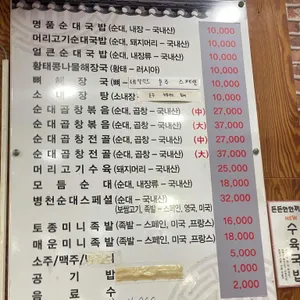 명품순대국밥 (순대, 내장 – 국내산) 10,000
머리고기순대국밥 (순대, 돼지머리 – 국내산) 10,000
얼큰순대국밥 (순대, 내장류 – 국내산) 10,000
황태콩나물해장국 (황태 – 러시아) 10,000
뼈해장국 10,000
소내장탕 (소내장 10,000
순대곱창볶음 (순대, 곱창 – 국내산) (中) 27,000
순대곱창볶음 (순대, 곱창 – 국내산) (大) 37,000
순대곱창전골 (순대, 곱창 – 국내산) (中) 27,000
순대곱창전골 (순대, 곱창 – 국내산) (大) 37,000
머리고기수육 (돼지머리 – 국내산) 25,000
모듬순대 (순대, 내장류 – 국내산) 18,000
병천순대스페셜 (순대, 곱창 – 국내산) 32,000
(보쌈고기, 족발 – 스페인, 영국, 미국)
토종미니족발 (족발 – 스페인, 미국, 프랑스) 16,000
매운미니족발 (족발 – 스페인, 미국, 프랑스) 18,000
소주/맥주/ 5,000
공기밥 1,000
음료수 2,000
든든한한끼
수육국밥